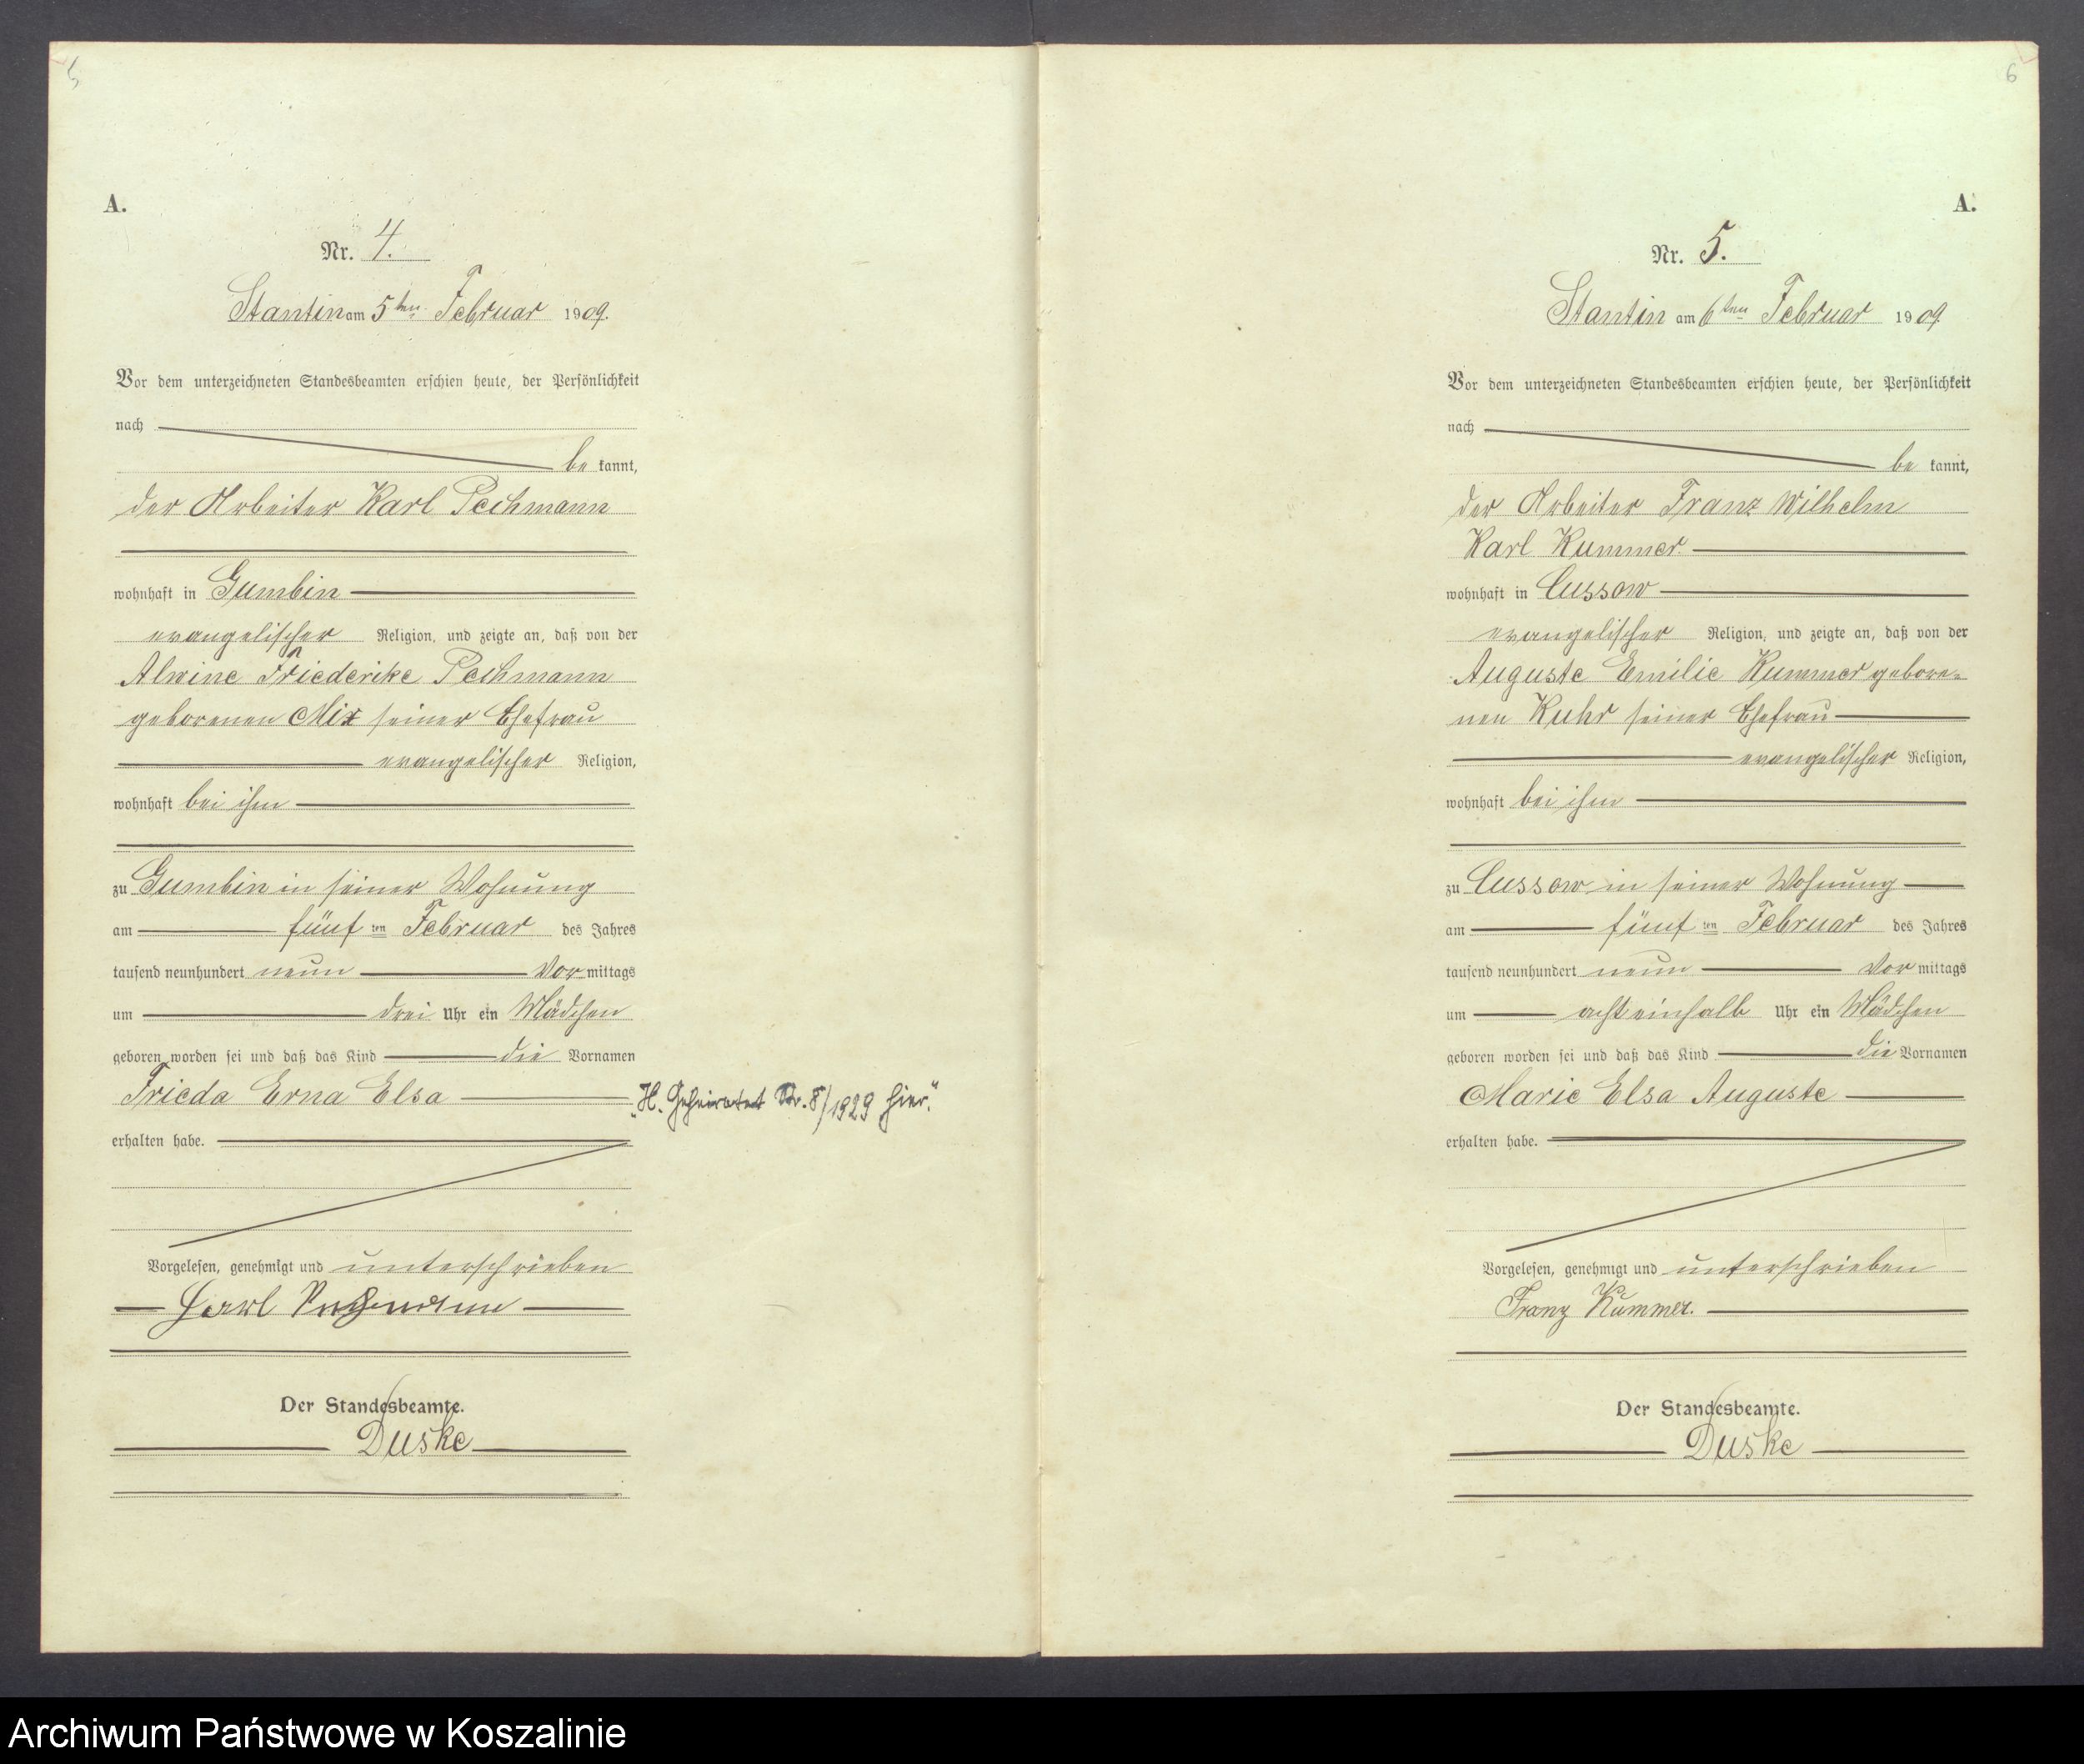 5
A.
Nr. 4.
Stantin am 5ten Februar 1909.
Vor dem unterzeichneten Standesbeamten erschien heute, der Persönlichkeit
nach
be kannt,
der Arbeiter Karl Pechmann
wohnhaft in Gumbin
evangelischer Religion, und zeigte an, daß von der
Alwine Friederike Pechmann
geborenen Mix seiner Ehefrau
evangelischer Religion,
wohnhaft bei ihm
zu Gumbin in seiner Wohnung
am fünf ten Februar des Jahres
tausend neunhundert neun Vor mittags
um drei Uhr ein Mädchen
geboren worden sei und daß das Kind die Vornamen
Frieda Erna Elsa
„H. Geheiratet Nr. 8/1929 hier."
erhalten habe.
Vorgelesen, genehmigt und unterschrieben
Karl Pechmann
Der Standesbeamte.
Duske
6
A.
Nr. 5.
Stantin am 6ten Februar 1909.
Vor dem unterzeichneten Standesbeamten erschien heute, der Persönlichkeit
nach
be kannt,
der Arbeiter Franz Wilhelm
Karl Kummer
wohnhaft in Cussow
evangelischer Religion, und zeigte an, daß von der
Auguste Emilie Kummer gebore-
nen Kuhr seiner Ehefrau
evangelischer Religion,
wohnhaft bei ihm
zu Cussow in seiner Wohnung
am fünf ten Februar des Jahres
tausend neunhundert neun Vor mittags
um acht einhalb Uhr ein Mädchen
geboren worden sei und daß das Kind die Vornamen
Marie Elsa Auguste
erhalten habe.
Vorgelesen, genehmigt und unterschrieben
Franz Kummer.
Der Standesbeamte.
Duske
Archiwum Państwowe w Koszalinie